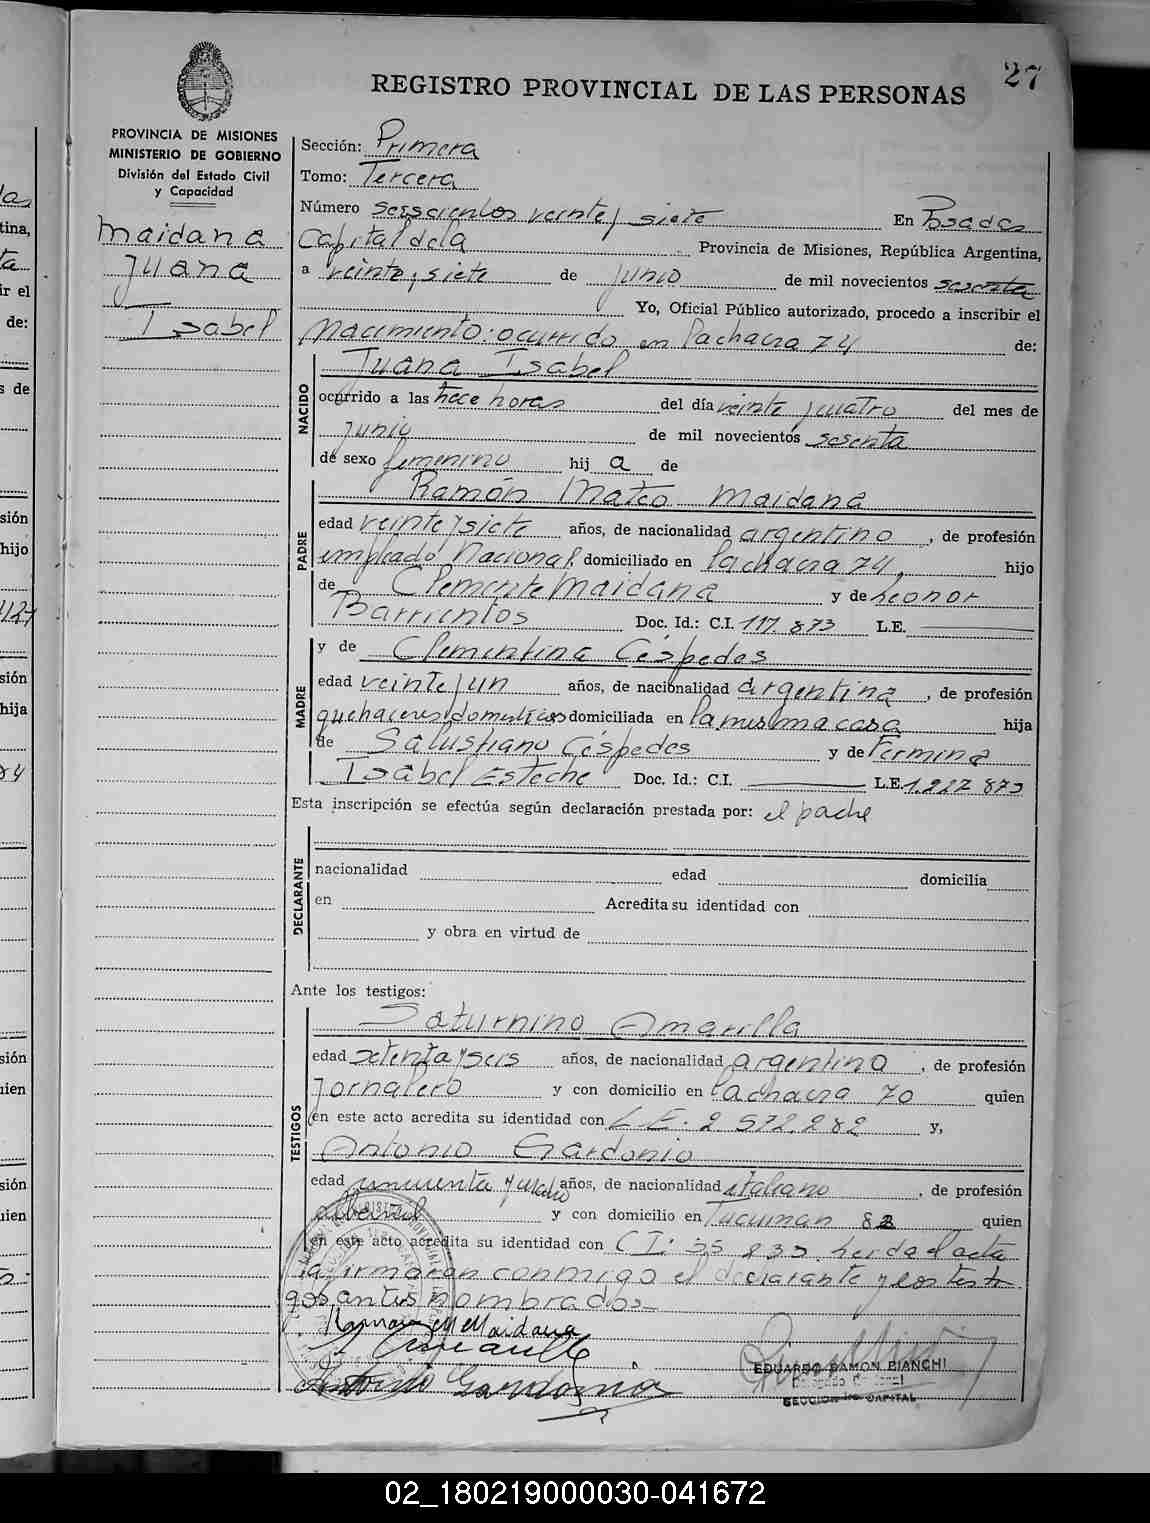 27
REGISTRO PROVINCIAL DE LAS PERSONAS
PROVINCIA DE MISIONES
MINISTERIO DE GOBIERNO
División del Estado Civil
y Capacidad
Maidana
Juana
Isabel
Sección: Primera
Tomo: Tercera
Número seiscientos veinte y siete En Posadas
Capital de la Provincia de Misiones, República Argentina,
a veinte y siete de junio de mil novecientos sesenta
Yo, Oficial Público autorizado, procedo a inscribir el
Nacimiento: ocurrido en la chacra 74 de:
NACIDO
Juana Isabel
ocurrido a las trece horas del día veinte y cuatro del mes de
junio de mil novecientos sesenta
de sexo femenino hij a de
PADRE
Ramón Mateo Maidana
edad veinte y siete años, de nacionalidad argentino, de profesión
empleado Nacional, domiciliado en la chacra 74, hijo
de Clemente Maidana y de Leonor
Barrientos Doc. Id.: C.I. 117.873 L.E.
MADRE
y de Clementina Céspedes
edad veinte y un años, de nacionalidad argentina, de profesión
quehaceres domesticos domiciliada en la misma casa hija
de Salustiano Céspedes y de Fermina
Isabel Esteche Doc. Id.: C.I. L.E. 1.227.873
Esta inscripción se efectúa según declaración prestada por: el padre
DECLARANTE
nacionalidad edad domicilia
en Acredita su identidad con
y obra en virtud de
Ante los testigos:
TESTIGOS
Saturnino Amarilla
edad setenta y seis años, de nacionalidad argentino, de profesión
Jornalero y con domicilio en la chacra 70 quien
en este acto acredita su identidad con L.E. 2.572.282 y,
Antonio Gardonio
edad cincuenta y años, de nacionalidad italiano, de profesión
albañil y con domicilio en Tucuman 82 quien
en este acto acredita su identidad con C I: 35.833. leida el acta
la firmaran conmigo el declarante y los testi
gos antes nombrados
Ramon M Maidana
S Amarilla
Antonio
EDUARDO RAMON BIANCHI
SECCION 1ra CAPITAL
02_180219000030-041672